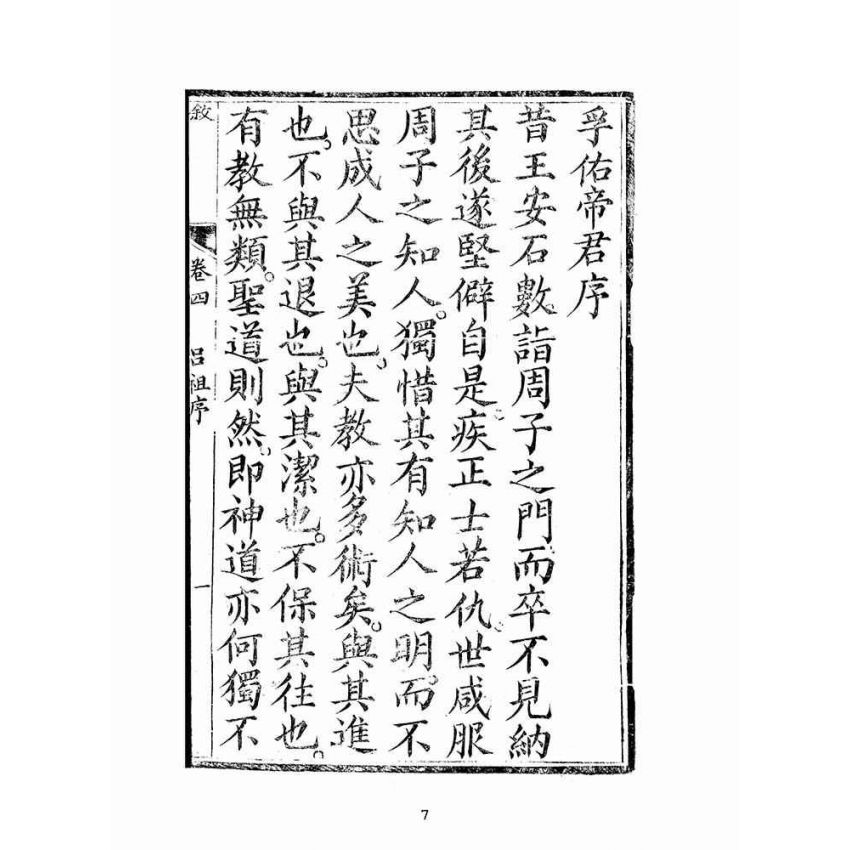 孚佑帝君序
昔王安石數詣周子之門而卒不見納
其後遂堅僻自是。疾正士若仇。世咸服
周子之知人。獨惜其有知人之明。而不
思成人之美也。夫教亦多術矣。與其進
也。不與其退也。與其潔也。不保其往也。
有教無類。聖道則然。即神道亦何獨不
敘
卷四 呂祖序
一
7